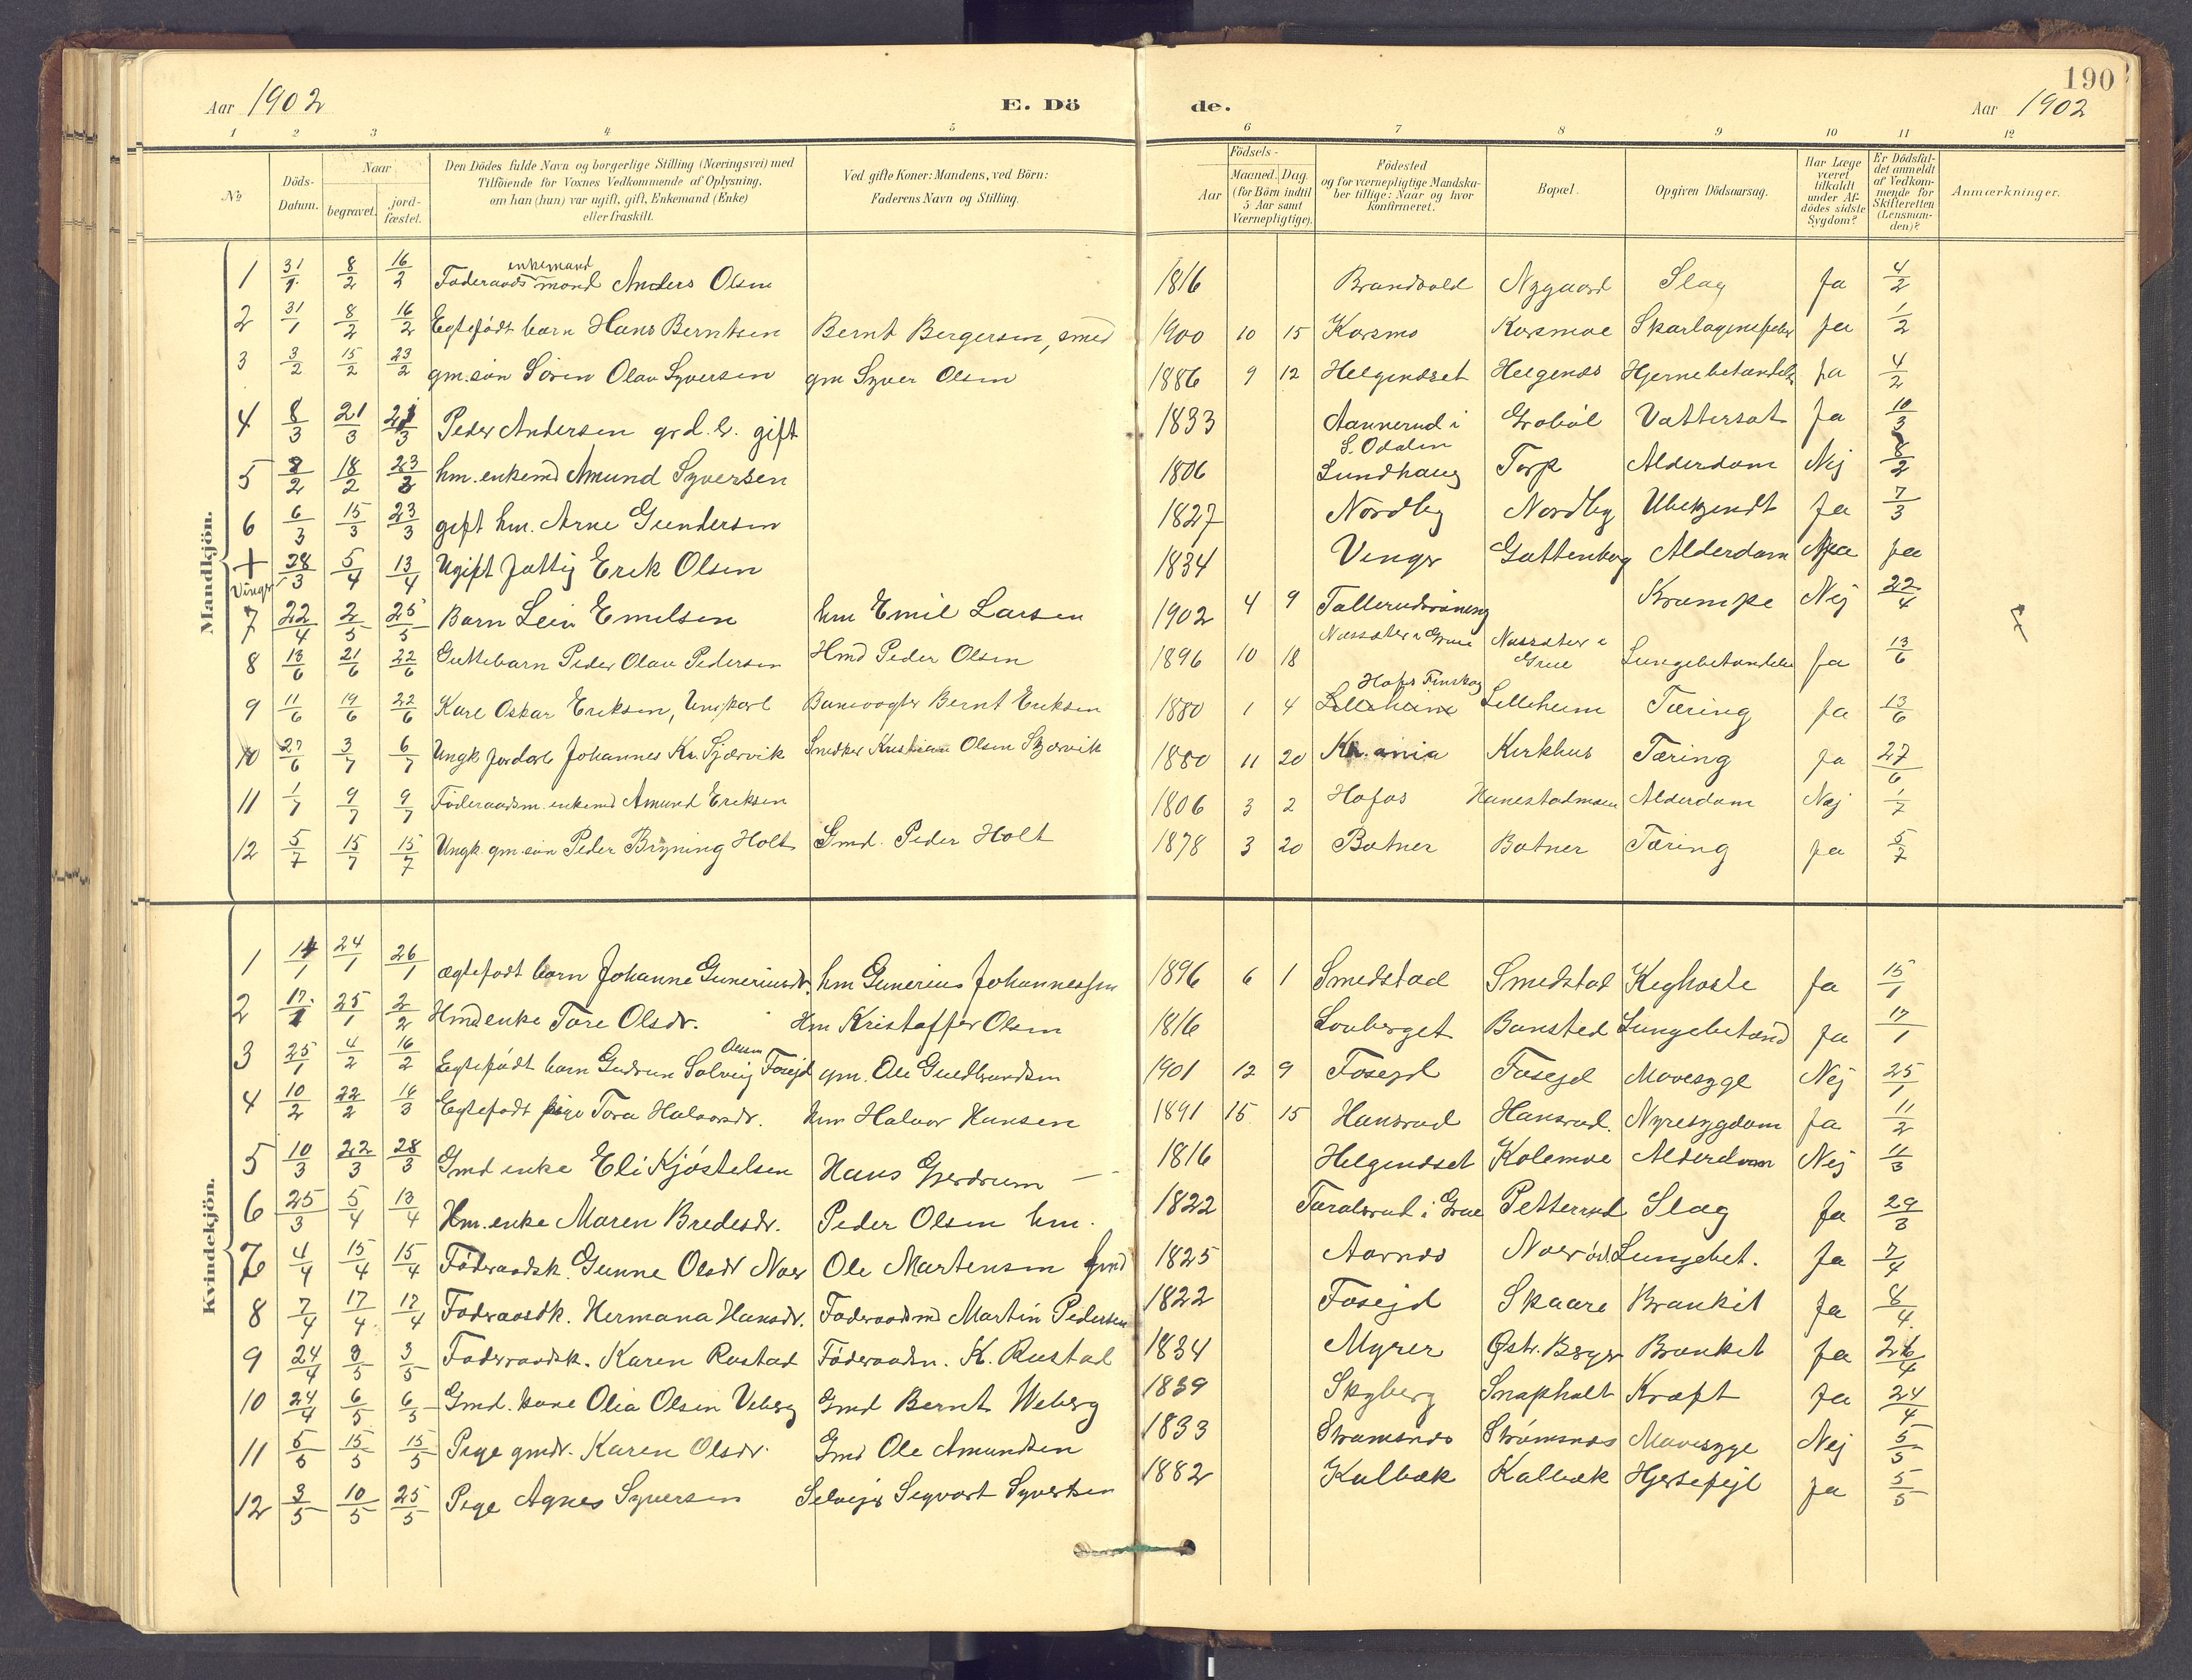 190
Aar 1902 E. Dö de. Aar 1902
1 2 3 4 5 6 7 8 9 10 11 12
No
Döds-Datum.
Naar
begravet.
jord-fæstet.
Den Dödes fulde Navn og borgerlige Stilling (Næringsvei) med
Tilföiende for Voxnes Vedkommende af Oplysning,
om han (hun) var ugift, gift, Enkemand (Enke)
eller fraskilt.
Ved gifte Koner: Mandens, ved Börn:
Faderens Navn og Stilling.
Födsels-
Aar
Maaned. Dag.
(for Börn indtil
5 Aar samt
Værnepligtige).
Födested
og for værnepligtige Mandska-
ber tillige: Naar og hvor
konfirmeret.
Bopæl.
Opgiven Dödsaarsag.
Har Læge
været
tilkaldt
under Af-
dödes sidste
Sygdom?
Er Dödsfal-
det anmeldt
af Vedkom-
mende for
Skifteretten
(Lensman-
den)?
Anmærkninger.
Mandkjön.
1 31/1 8/2 16/2 Föderaadsmand enkemand Anders Olsen 1816 Brandvold Nygaard Slag Ja 4/2
2 31/1 8/2 16/2 Egtefödt barn Hans Berntsen Bernt Bergersen, smed 1900 10 15 Korsmo Korsmoe Ja 1/2
3 3/2 15/2 23/2 gm. sön Sören Olav Syversen gm Syver Olsen 1886 9 12 Helgendset Helgends Hjernebetændelse Ja 4/2
4 8/3 21/3 21/3 Peder Andersen grd. br. gift 1833 Aannerud i S. Odalen Grøbøl Vattersot Ja 10/3
5 8/2 18/2 23/2 hm. enkemd Amund Syversen 1806 Lundhaug Torp Alderdom Nej 8/2
6 6/3 15/3 23/3 gift hm. Arne Gundersen 1827 Nordby Nordby Ubekjendt Ja 7/3
+ Vinger 28/3 5/4 13/4 Ugift Fattig Erik Olsen 1834 Vinger Guttenberg Alderdom ja
7 22/4 2/5 25/5 Barn Leiv Emilsen hm Emil Larsen 1902 4 9 Krampe Nej 22/4
8 13/6 21/6 22/6 Guttebarn Peder Olav Pedersen Hmd Peder Olsen 1896 10 18 Næssæter i Grue Næssæter i Grue Lungebetændelse Ja 13/6
9 11/6 19/6 22/6 Karl Oskar Eriksen, Ungkarl Banevogter Bernt Eriksen 1880 1 4 Hofs Finskog Lilleheim Lilleheim Tæring ja 13/6
10 27/6 3/7 6/7 Ungk Johannes Kr. Sjørvik Snedker Kristian Olsen 1880 11 20 Kr.ania Kirkhus Tæring ja 27/6
11 1/7 9/7 9/7 Föderaadsm. enkemd Amund Eriksen 1806 3 2 Hofos Hanestadmoen Alderdom Nej 1/7
12 5/7 15/7 15/7 Ungk. gm. sön Peder Bryning Holt Gmd. Peder Holt 1878 3 20 Botner Botner Tæring ja 5/7
Kvindekjön.
1 14/1 24/1 26/1 ægtefødt barn Johanne Guneriusdr. hm Gunerius Johannessen 1896 6 1 Smedstad Smedstad Kighoste Ja 15/1
2 17/1 25/1 2/2 Hmd enke Tore Olsdr. Hm Kristoffer Olsen 1816 Louberget Bansted Lungebetænd ja 17/1
3 25/1 4/2 16/2 Egtefödt barn Gudrun Solveig Olsen Fosejd gm. Ole Guldbrandsen 1901 12 9 Fosejd Fosejd Mavesyge Nej 25/1
4 10/2 22/2 16/3 Egtefødt pige Tora Halvorsdr. hm Halvor Hansen 1891 15 15 Hansrud Hansrud. Nyresygdom Ja 11/2
5 10/3 22/3 28/3 Gmd enke Eli Kjøstelsen Hans Gjerdrum — 1816 Helgendset Kolsmoe Alderdom Nej 11/3
6 25/3 5/4 13/4 Hm. enke Maren Bredesdr. Peder Olsen hm. 1822 Taralsrud i Grue Petterrud Slag Ja 29/3
7 4/4 15/4 15/4 Föderaadsk. Gunne Olsdr Noer Ole Martensen Gmd 1825 Aarnes Noer öst. Lungebet. Ja 7/4
8 7/4 17/4 17/4 Föderaadsk. Hermana Hansdr. Föderaadsmd Martin Pedersen 1822 Fosejd Skaare Brankit Ja 8/4
9 24/4 3/5 3/5 Föderaadsk. Karen Rustad Föderaadsm. K. Rustad 1834 Myrer Østr. Berger Bronkit Ja 26/4
10 24/4 6/5 6/5 Gmd. kone Olia Olsen Veberg Gmd Bernt Weberg 1839 Skyberg Snapholt Kræft Ja 24/4
11 5/5 15/5 15/5 Pige gmdr. Karen Olsdr. Gmd Ole Amundsen 1833 Strømsnes Strømsnes Mavesyge Nej 5/5
12 3/5 10/5 25/5 Pige Agnes Syversen Selvejer Segvart Syvertsen 1882 Kalbæk Kalbæk Hjertefejl Ja 5/5